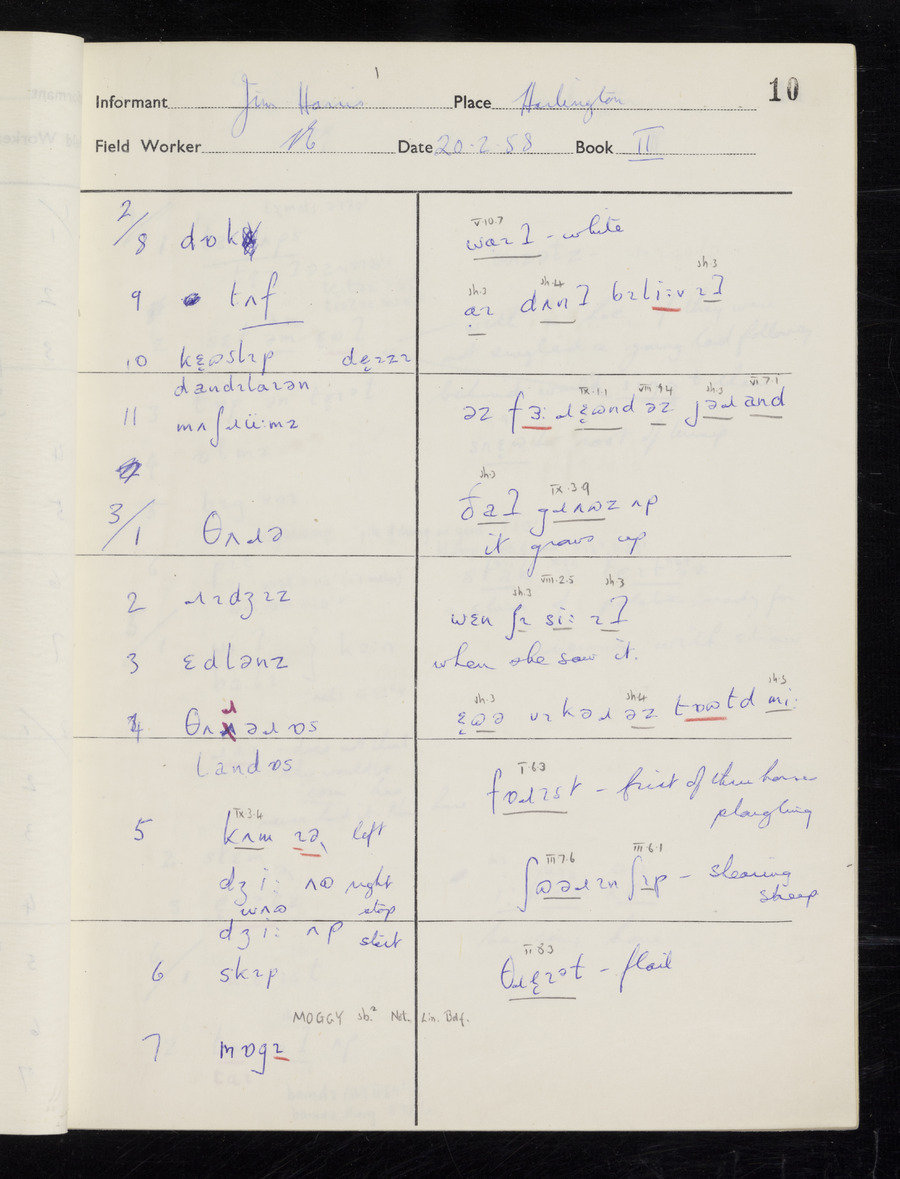 10
Informant Jim Harris Place Harlington
Field Worker Date 20.2.58 Book II
2/8 dɒk
9 tʌf
10 kęʊslɪp dęɪzɪz
dandɪlaɪən
11 mʌʃɹüːmz
3/1 θʌɹə
2 ɹɪdʒɪz
3 ɛdlənz
4 θʌɹəɹ ɒs
land ɒs
IX 3.4
5 kʌm ɪə left
dʒiː ʌʊ right
wʌʊ stop
dʒiː ʌp start
6 skɪp
MOGGY sb.² Not. Lin. Bdf.
7 mɒgɪ
V.10.7
waɪʔ - white
sh.3 sh.4 sh.3
aɪ dʌnʔ bɪliːv ɪʔ
IX.1.1 VIII.9.4 sh.3 VI.7.1
əz fɜːɹęʊnd əz jəɹ and
sh.3 IX.3.9
ðaʔ gɹʌʊz ʌp
it grows up
sh.3 VIII.2.5 sh.3
wɛn ʃɪ siː ɪʔ
when she saw it.
sh.3 sh.4 sh.3
ęʊə vɪkəɹ əz tɒʊtd miː
I.6.3
fɒɹɪst - first of three horse
ploughing
III 7.6 III.6.1
ʃʊəɹɪn ʃɪp - shearing
sheep
II 8.3
θɹęɪət - flail